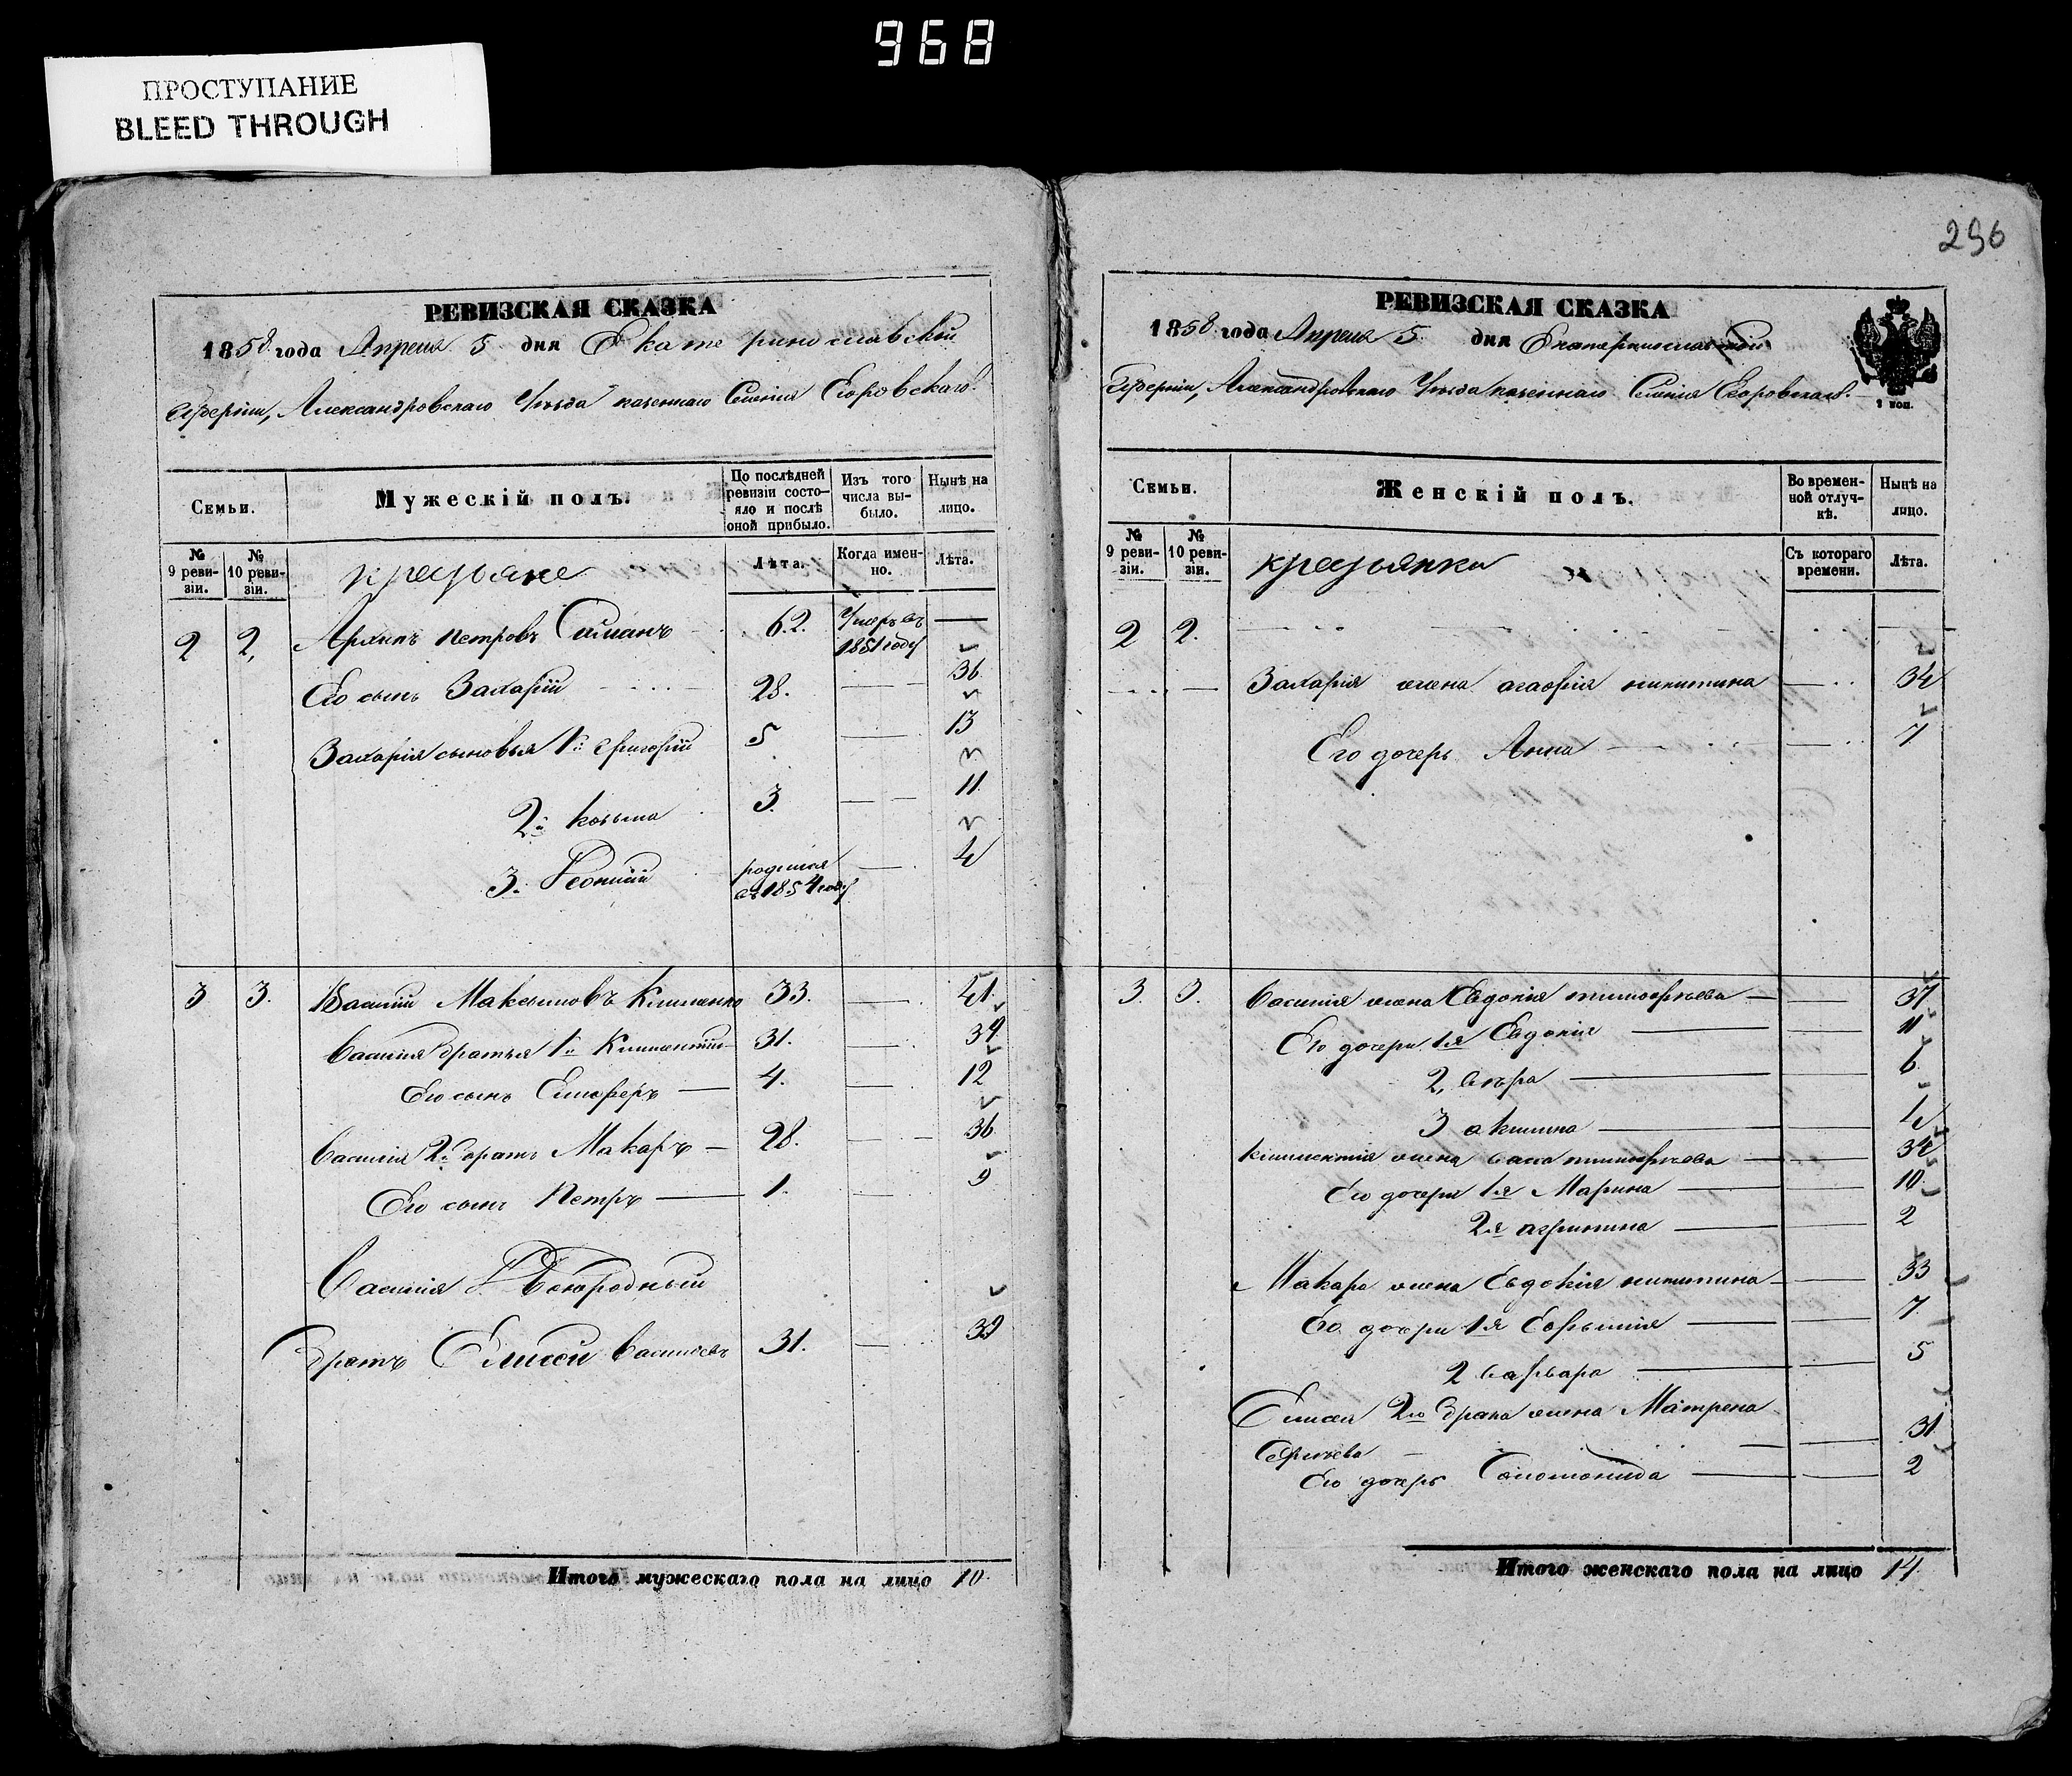 968
ПРОСТУПАНИЕ
BLEED THROUGH
РЕВИЗСКАЯ СКАЗКА
1858 года Апреля 5 дня Екатеринославской
Губерніи, Александровскаго Уѣзда казеннаго Селенія Егоровскаго.
Семьи.
Мужескій полъ.
По послѣдней ревизіи состо-
яло и послѣ
оной прибыло.
Изъ того
числа вы-
было.
Нынѣ на
лицо.
№
9 реви-
зіи.
№
10 реви-
зіи.
крестьяне
Лѣта.
Когда имен-
но.
Лѣта.
2 2, Архипъ Петровъ 62. Умеръ въ 1851 году —
Его сынъ Захарій 28. — 36
Захарія сыновья 1й Григорій 5 — 13
2й Козьма 3. — 11.
3. родился въ 1854 году — 4
3 3. Василий Максимовъ Клименко 33. — 41.
Василія братья 1й Климентій 31. — 39
Его сынъ 4. — 12
Василія 2й братъ Макаръ — 28. — 36.
Его сынъ Петръ — 1. — 9
Василія Двоюродный
братъ Елисей Васильевъ 31. — 39
Итого мужескаго пола на лицо 10.
296
РЕВИЗСКАЯ СКАЗКА
1858 года Апреля 5 дня Екатеринославской
Губерніи, Александровскаго Уѣзда казеннаго Селенія Егоровскаго.
1 коп.
Семьи.
Женскій полъ.
Во времен-
ной отлуч-
кѣ.
Нынѣ на
лицо.
№
9 реви-
зіи.
№
10 реви-
зіи.
крестьянки
Съ котораго
времени.
Лѣта.
2 2.
Захарія жена Агафія Никитина — 34
Его дочерь Анна — 7
3. 3. Василія жена Евдокія Тимофѣева — 37
Его дочери 1я Евдокія — 11
2, Вѣра — 6
3 Акилина — 4
Климентія жена Тимофѣева — 34
Его дочери 1я Марина — 10.
2я Агрипина — 2
Макара жена Евдокія Никитина — 33
Его дочери 1я — 7
2 Варвара — 5
Елисея 2го брака жена Матрена
— 31
Его дочерь Соломонида — 2
Итого женскаго пола на лицо 14.